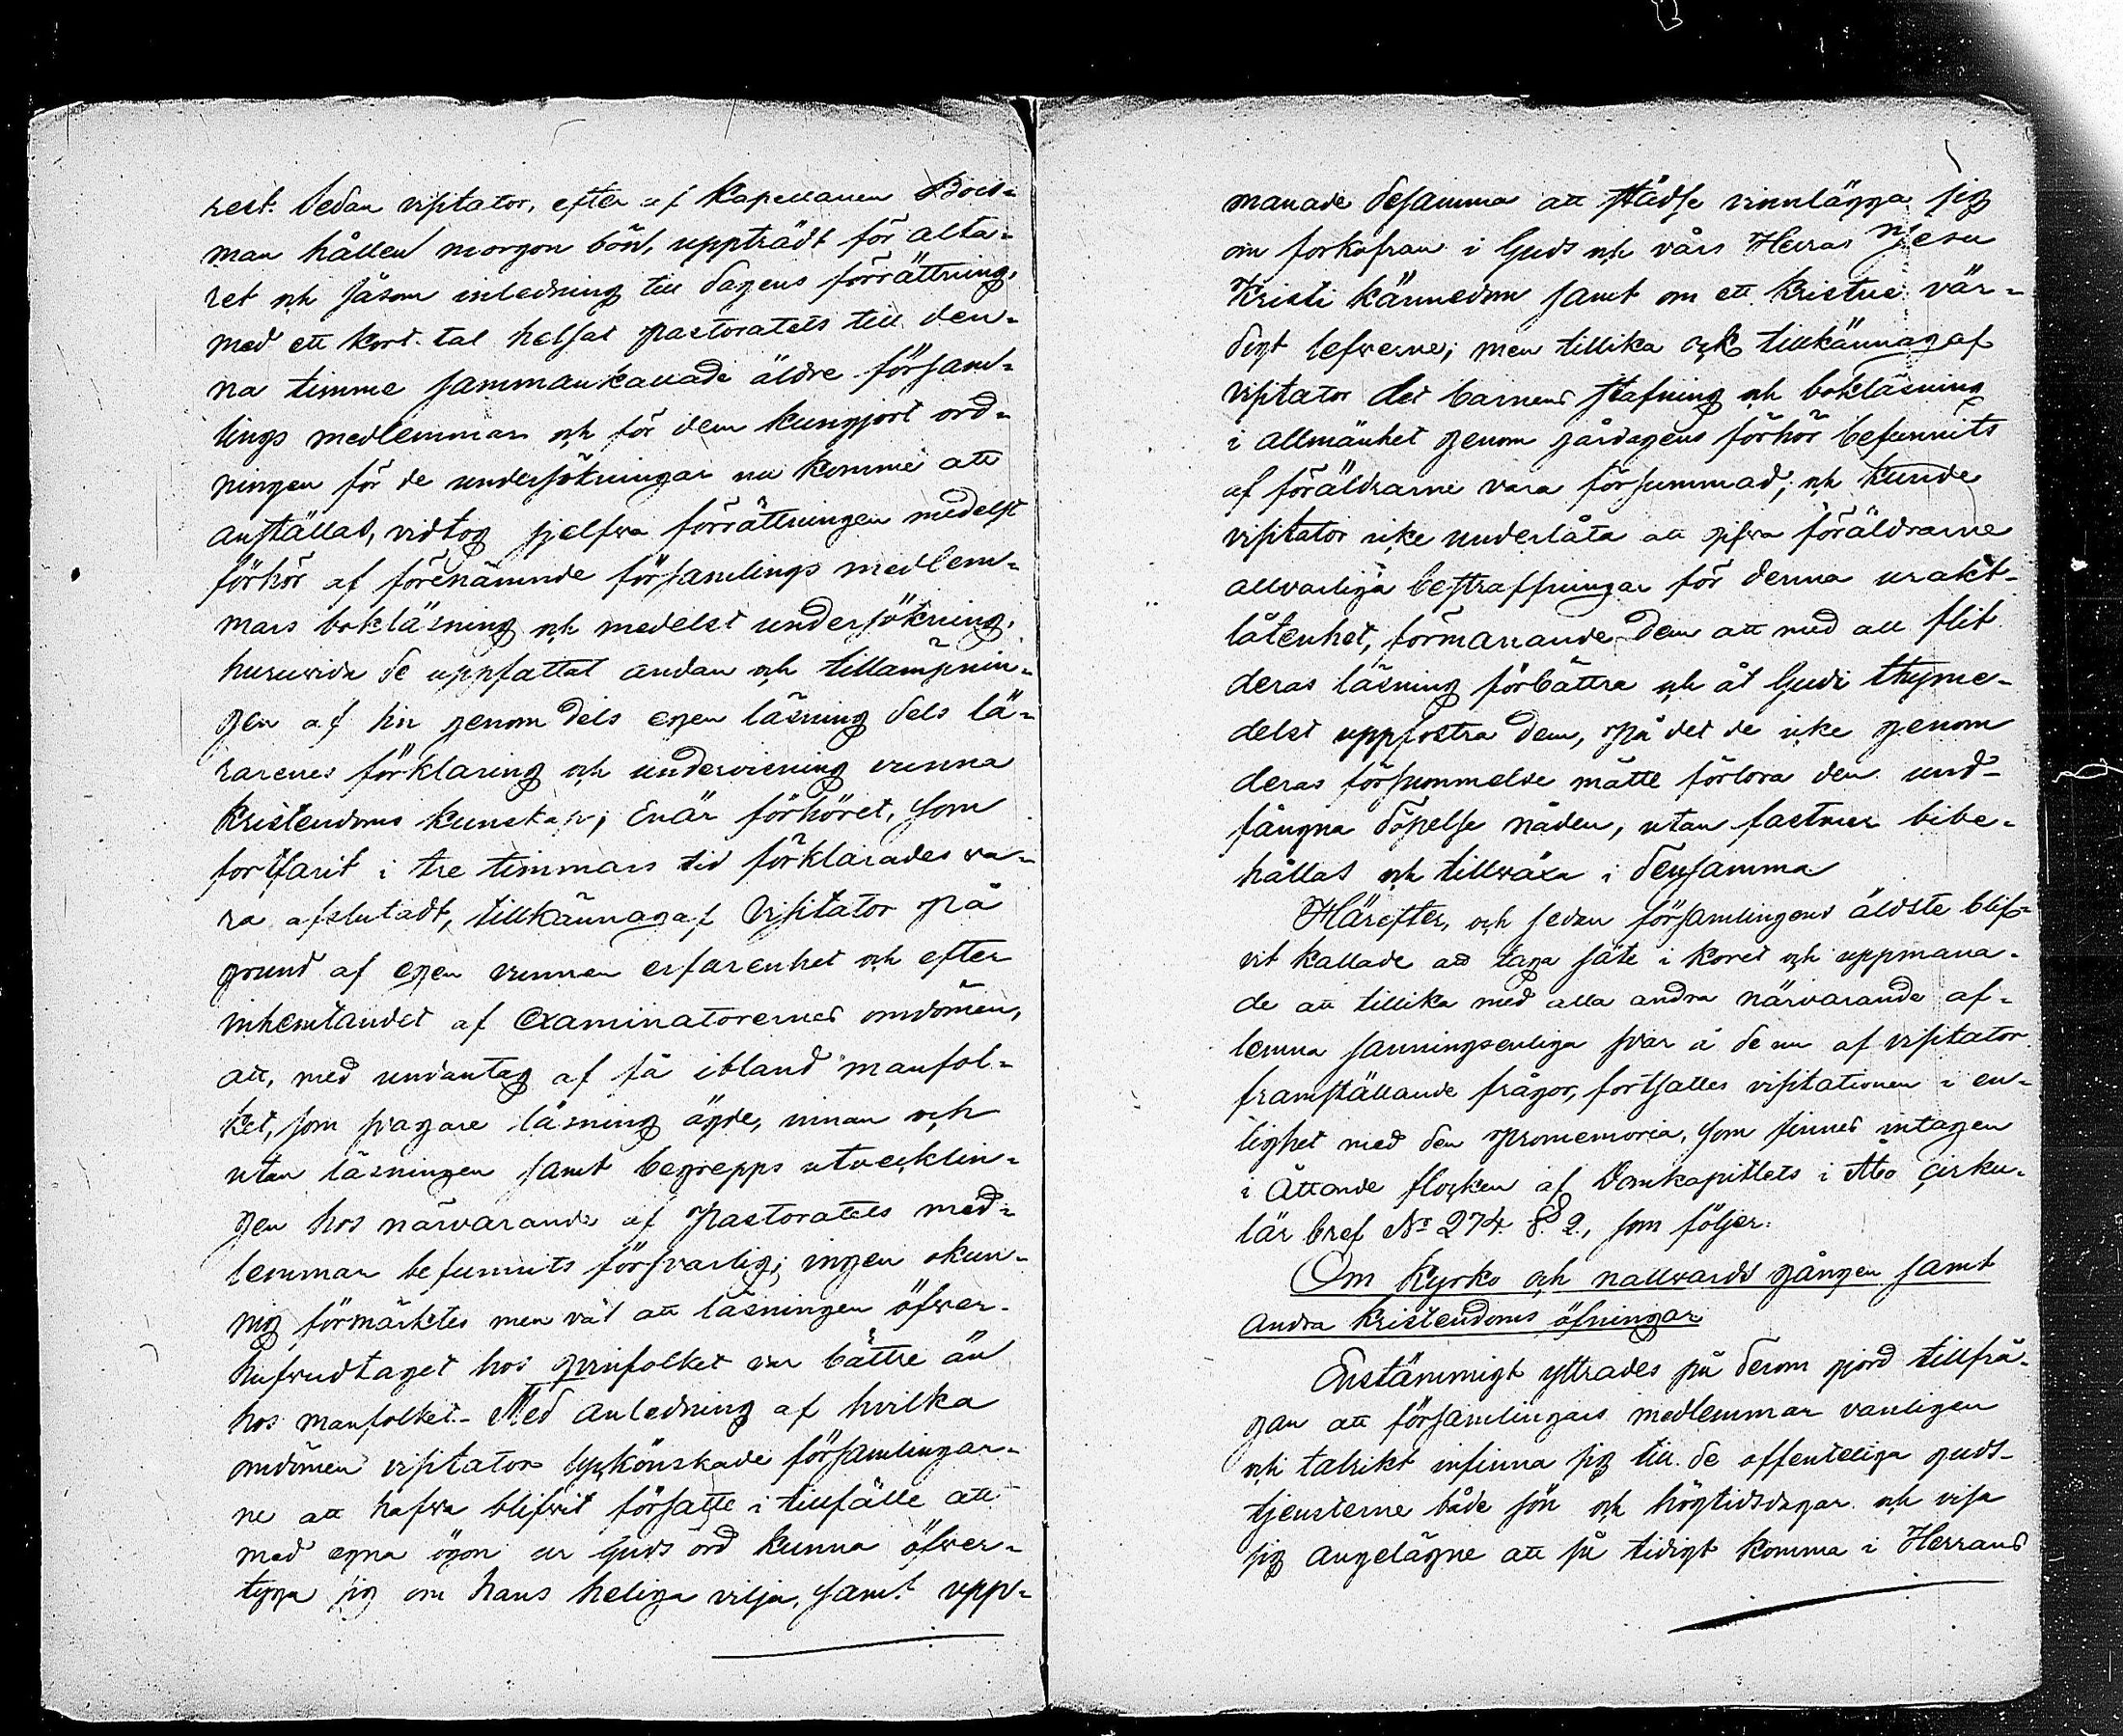 rest. Sedan visitator, efter af Kapellanen Bois-
man hållen morgon bön, uppträdt för alta-
ret och såsom inledning till dagens förrättning,
med ett kort tal helsat pastoratets till den-
na timme sammankallade äldre försam-
lings medlemmar och för dem kungjort ord-
ningen för de undersökningar nu komme att
anställas, vidtog sjelfva förrättningen medelst
förhör af förenämnde församlings medlem-
mars bokläsning och medelst undersökning,
huruvida de uppfattat andan och tillämpnin-
gen af sin genom dels egen läsning dels lä-
rarenes förklaring och undervisning vunna
Kristendoms kunskap; Enär förhöret, som
fortfarit i tre timmars tid förklarades va-
ra afslutadt, tillkännagaf Visitator på
grund af egen vunnen erfarenhet och efter
inhemtandet af Examinatorernes omdömen,
att, med undantag af få ibland manfol-
ket, som svagare läsning ägde, innan och
utan läsningen samt begrepps utvecklin-
gen hos närvarande af Pastoratets med-
lemmar befunnits försvarlig; ingen okun-
nig förmärktes men väl att läsningen öfver-
hufvudtaget hos qvinfolket var bättre än
hos manfolket. Med anledning af hvilka
omdömen visitator lyckönskade församlingar-
ne att hafva blifvit försatte i tillfälle att
med egna ögon ur Guds ord kunna öfver-
tyga sig om hans heliga vilja, samt upp-
manade desamma att städse vinnlägga sig
om forkofran i Guds och vårs Herras Jesu
Kristi kännedom samt om ett Kristne vär-
digt lefverne; men tillika ock tillkännagaf
visitator det barnens stafning och bokläsning
i allmänhet genom gårdagens förhör befunnits
af föräldrarne vara försummad; och kunde
visitator icke underlåta att gifva föräldrarne
allvarliga bestraffningar för denna urakt-
låtenhet, förmanande dem att med all flit
deras läsning förbättra och åt Gudi thyme-
delst uppfostra dem, på det de icke genom
deras försummelse måtte förlora den und-
fångna döpelse nåden, utan fastmer bibe-
hållas och tillväxa i densamma
Härefter, och sedan församlingens äldste blif-
vit kallade att taga säte i koret och uppmana-
de att tillika med alla andra närvarande af-
lemna sanningsenliga svar å de nu af visitator
framställande frågor, fortsattes visitationen i en-
lighet med den promemoria, som finnes intagen
i åttonde flocken af Domkapitlets i Åbo cirku-
lär bref No 274. § 2., som följer:
Om Kyrko och nattvards gången samt
andra Kristendoms öfningar
Enstämmigt yttrades på derom gjord tillfrå-
gan att församlingars medlemmar vanligen
och talrikt infinna sig till de offenteliga guds-
tjensterne både sön och högtidsdagar och visa
sig angelägne att så tidigt komma i Herrans